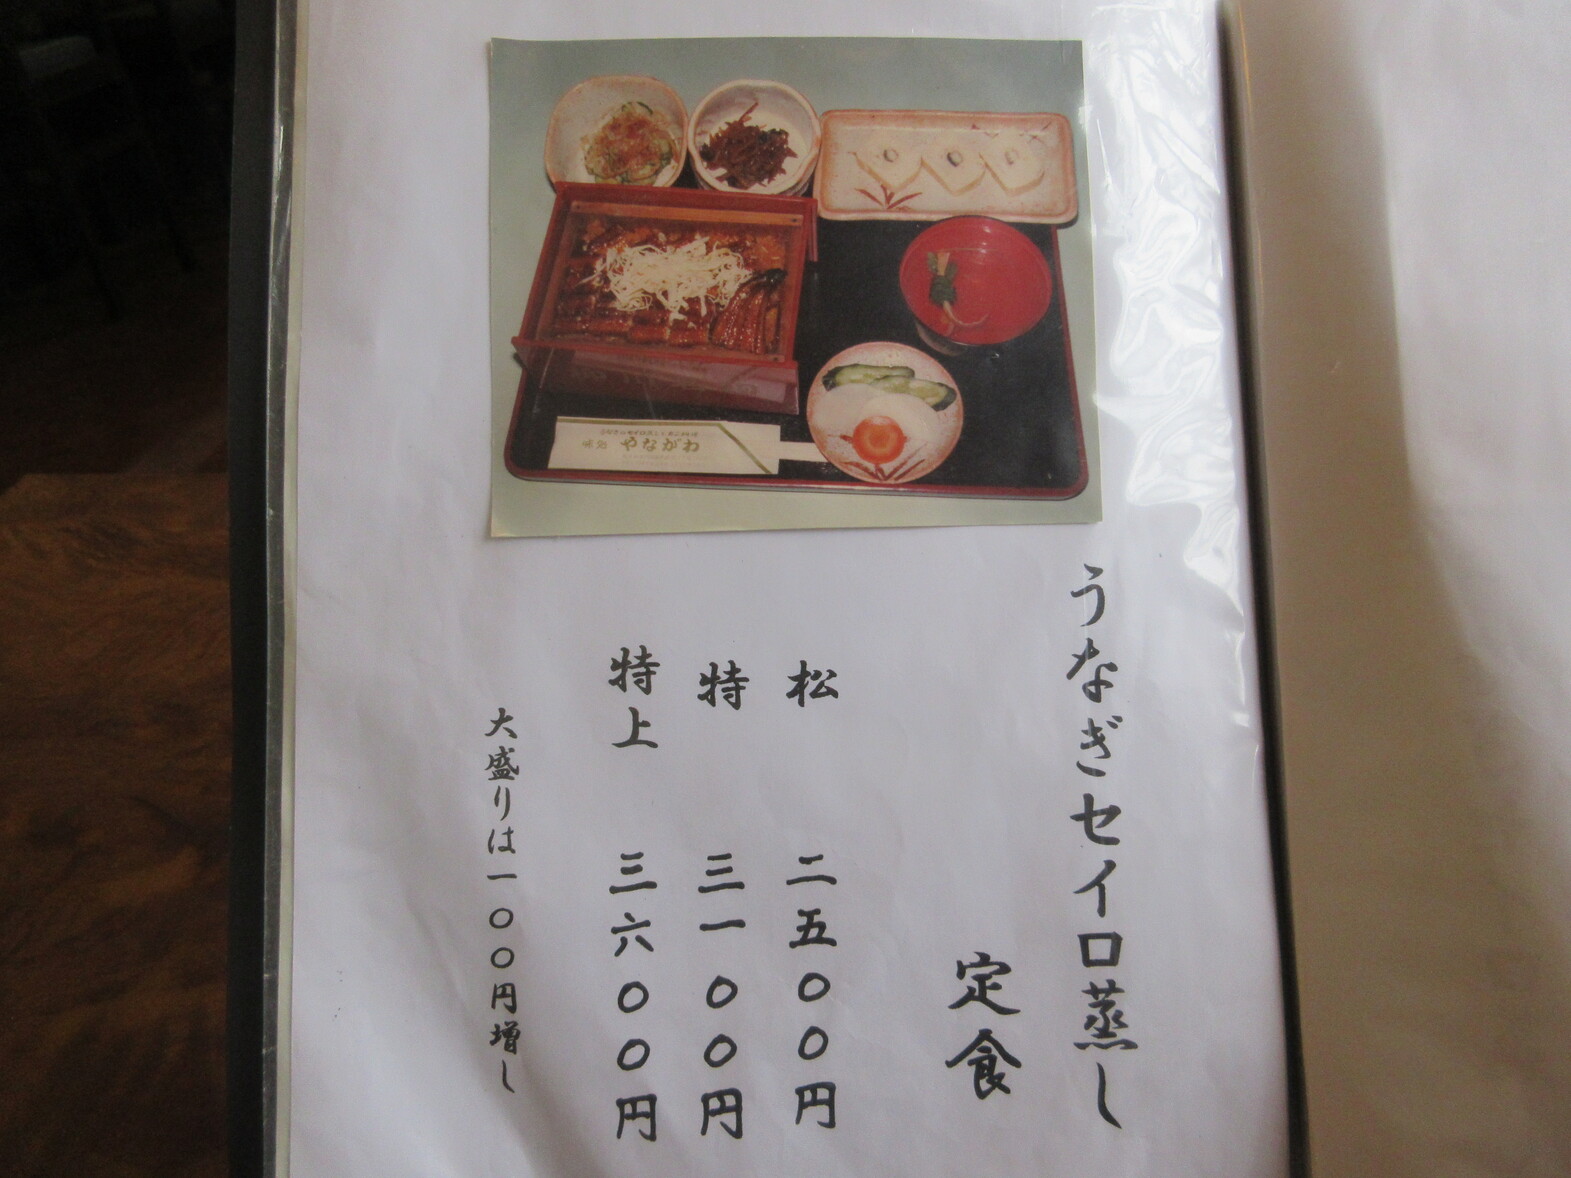 味処 やながわ
うなぎセイロ蒸し
定食
松 二五〇〇円
特 三一〇〇円
特上 三六〇〇円
大盛りは一〇〇円増し